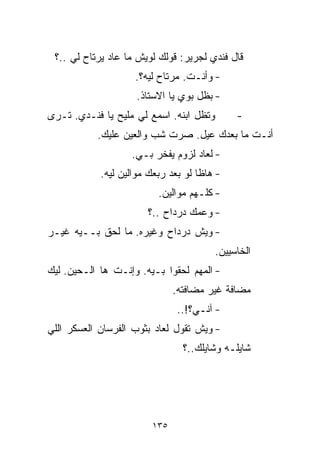 قال فندي لجرير: قولك لويش ما عاد يرتاح لي ..؟
- وأنـت. مرتاح ليه؟.
- بظل بوي يا الاستاذ.
- وتظل ابنه. اسمع لي مليح يا فنـدي. تـرى
أنـت ما بعدك عيل. صرت شب والعين عليك.
- لعاد لزوم يفخر بـي.
- هاظا لو بعد ربعك موالين ليه.
- كلـهم موالين.
- وعمك درداح ..؟
- ويش درداح وغيره. ما لحق بــيه غيـر
الخاسيين.
- المهم لحقوا بـيه. وإنـت ها الـحين. ليك
مضافة غير مضافته.
- آنـي؟!..
- ويش تقول لعاد بثوب الفرسان العسكر اللي
شايلـه وشايلك..؟
١٣٥